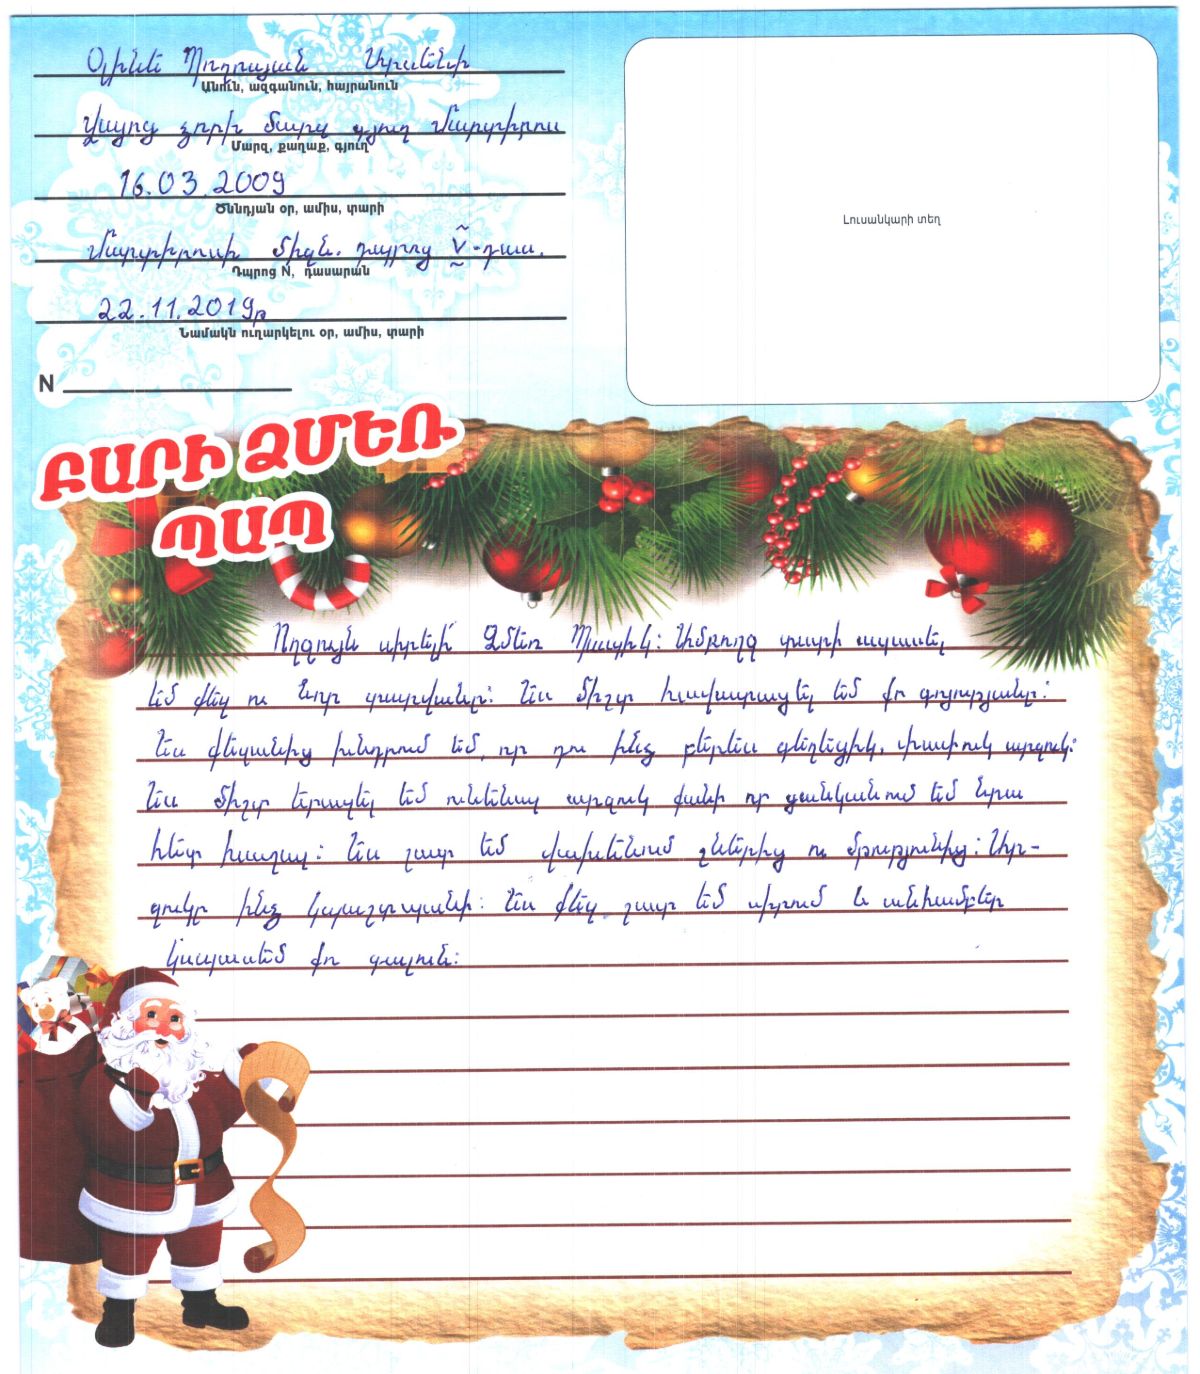 Օլինե Պողոսյան Արսենի
Անուն, ազգանուն, հայրանուն
Վայոց ձորի մարզ գյուղ Մարտիրոս
Մարզ, քաղաք, գյուղ
16.03.2009
Ծննդյան օր, ամիս, տարի
Մարտիրոսի միջն. դպրոց V-դաս.
Դպրոց N, դասարան
22.11.2019թ
Նամակն ուղարկելու օր, ամիս, տարի
N
Լուսանկարի տեղ
ԲԱՐԻ ՁՄԵՌ
ՊԱՊ
Ողջույն սիրելի՛ Ձմեռ Պապիկ: Ամբողջ տարի սպասել
եմ քեզ ու Նոր տարվանը: Ես միշտ հավատացել եմ քո գոյությանը:
Ես քեզանից խնդրում եմ, որ դու ինձ բերես գեղեցիկ, փափուկ արջուկ:
Ես միշտ երազել եմ ունենալ արջուկ քանի որ ցանկանում եմ նրա
հետ խաղալ: Ես շատ եմ վախենում շներից ու մթությունից: Ար-
ջուկը ինձ կպաշտպանի: Ես քեզ շատ եմ սիրում և անհամբեր
կսպասեմ քո գալուն: